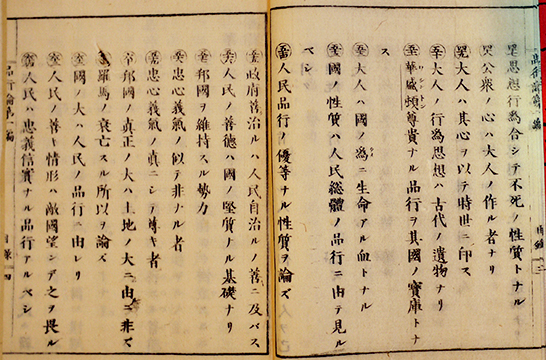 思想行為合シテ不死ノ性質トナル
公衆ノ心ハ大人ノ作ル者ナリ
大人ハ其心ヲ以テ時世ニ印ス
大人ノ行為思想ハ古代ノ遺物ナリ
華盛頓尊貴ナル品行ヲ其國ノ寶庫トナ
ス
大人ハ國ノ為ニ生命アル血トナル
國ノ性質ハ人民総體ノ品行ニ由テ見ル
ベシ
人民品行ノ優等ナル性質ヲ論ズ
政府善治ルハ人民自治ルノ善ニ及バズ
人民ノ善徳ハ國ノ堅質ナル基礎ナリ
邦國ヲ維持スル勢力
忠心義氣ノ似テ非ナル者
忠心義氣ノ真ニシテ尊キ者
邦國ノ真正ノ大ハ土地ノ大ニ由ニ非ズ
羅馬ノ衰亡スル所以ヲ論ズ
國ノ大ハ人民ノ品行ニ由レリ
人民ノ善キ情形ハ敵國望シテ之ヲ畏ル
人民ハ忠義信實ナル品行アルベシ
品行論第一編 目錄 四